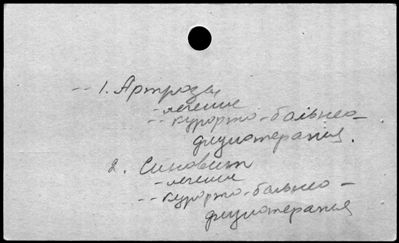 -- 1. Артрозы
- лечение
-- курорто-бальнео-
физиотерапия.
2. Синовит
- лечение
-- курорто-бальнео-
физиотерапия